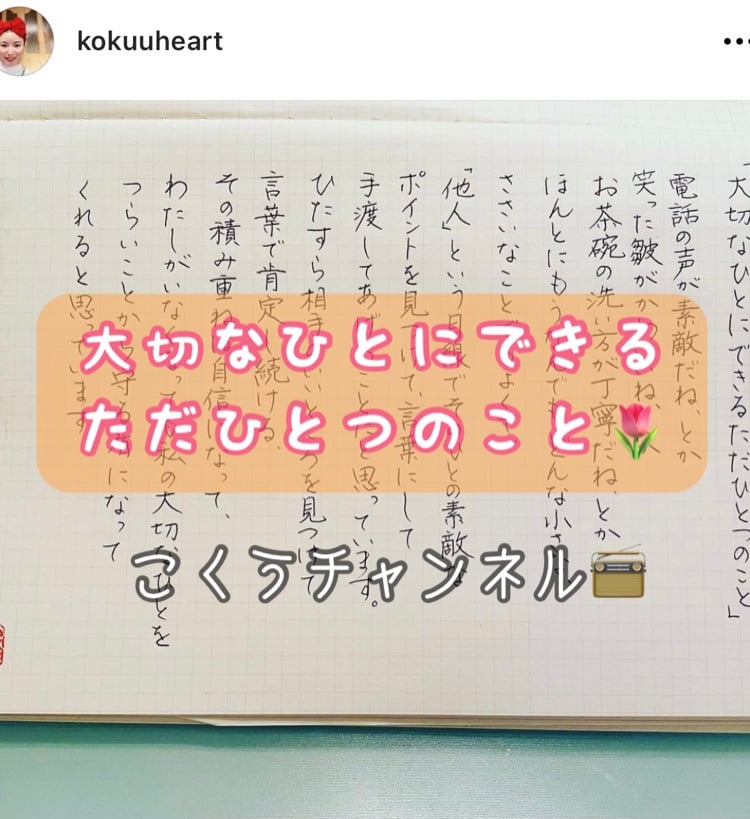 kokuuheart
大切なひとにできる
ただひとつのこと🌷
こくぅチャンネル📻
「大切なひとにできるただひとつのこと」
電話の声が素敵だね、とか
笑った皺が
お茶碗の洗い方が丁寧だね、とか
ほんとにもうなんでも、どんな小さな
ささいなこと
「他人」という目線でそのひとの素敵な
ポイントを見つけて、言葉にして
手渡してあげることだと思っています。
ひたすら相手のいいところを見つけて
言葉で肯定し続ける、
その積み重ねは自信になって、
わたしがいなくなっても私の大切なひとを
つらいことから守る になって
くれると思っています。